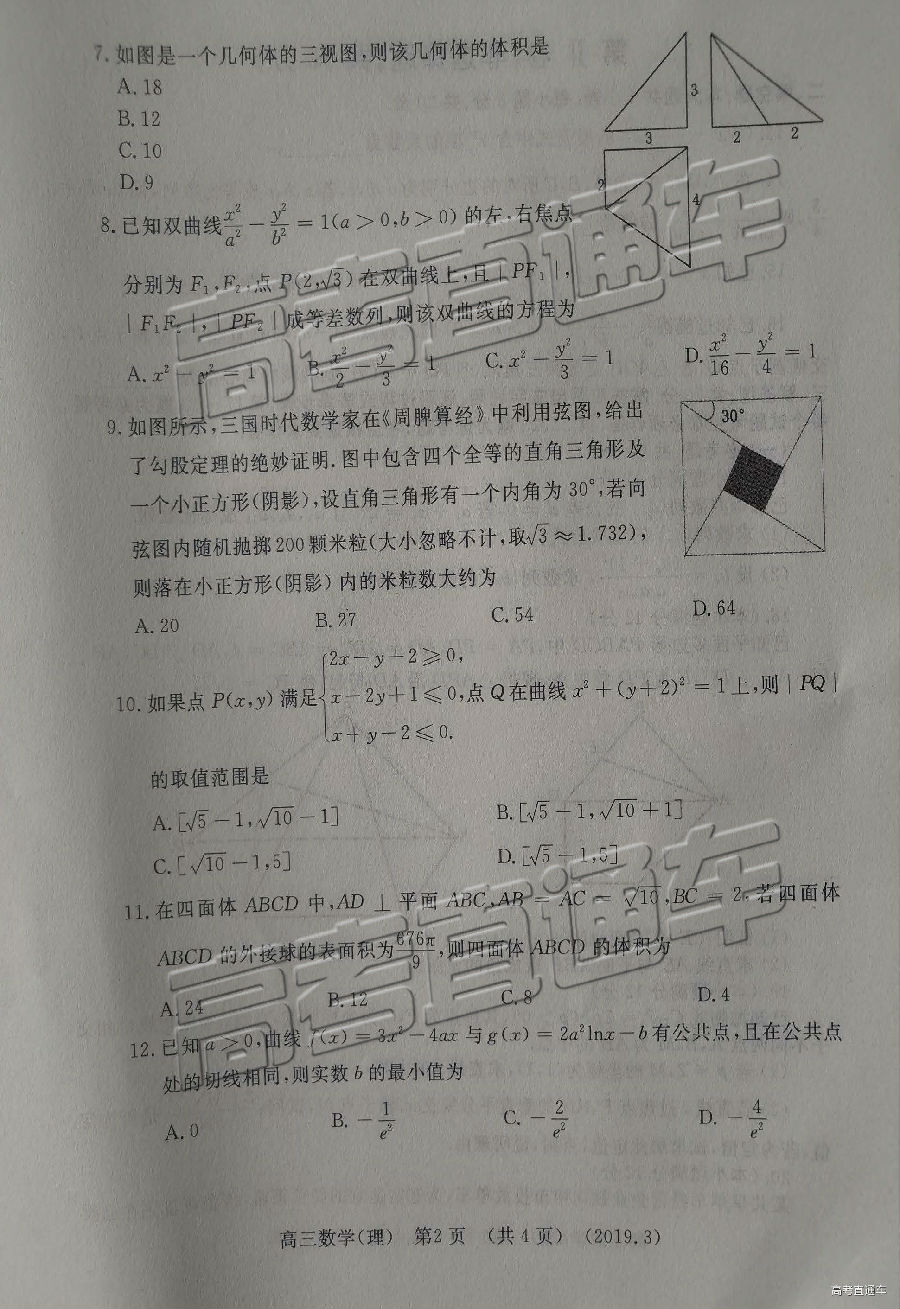 7. 如图是一个几何体的三视图,则该几何体的体积是
A. 18
B. 12
C. 10
D. 9
3
3
2
2
2
4
8. 已知双曲线x²/a² − y²/b² = 1(a > 0,b > 0) 的左、右焦点
分别为 F₁,F₂,点 P(2,√3) 在双曲线上,且 | PF₁ |,
| F₁F₂ |,| PF₂ | 成等差数列,则该双曲线的方程为
A. x² − y² = 1 B. x²/2 − y²/3 = 1 C. x² − y²/3 = 1 D. x²/16 − y²/4 = 1
9. 如图所示,三国时代数学家在《周脾算经》中利用弦图,给出
了勾股定理的绝妙证明. 图中包含四个全等的直角三角形及
一个小正方形(阴影),设直角三角形有一个内角为 30°,若向
弦图内随机抛掷 200 颗米粒(大小忽略不计,取√3 ≈ 1.732),
则落在小正方形(阴影) 内的米粒数大约为
30°
A. 20 B. 27 C. 54 D. 64
10. 如果点 P(x,y) 满足{2x − y − 2 ⩾ 0, x − 2y + 1 ⩽ 0, x + y − 2 ⩽ 0. 点 Q 在曲线 x² + (y + 2)² = 1 上,则 | PQ |
的取值范围是
A. [√5 − 1,√10 − 1] B. [√5 − 1,√10 + 1]
C. [√10 − 1,5] D. [√5 − 1,5]
11. 在四面体 ABCD 中,AD ⊥ 平面 ABC,AB = AC = √10,BC = 2. 若四面体
ABCD 的外接球的表面积为676π/9,则四面体 ABCD 的体积为
A. 24 B. 12 C. 8 D. 4
12. 已知 a > 0,曲线 f(x) = 3x² − 4ax 与 g(x) = 2a²lnx − b 有公共点,且在公共点
处的切线相同,则实数 b 的最小值为
A. 0 B. − 1/e² C. − 2/e² D. − 4/e²
高三数学(理) 第2页 (共4页) (2019.3)
高考直通车
高考直通车
高考直通车